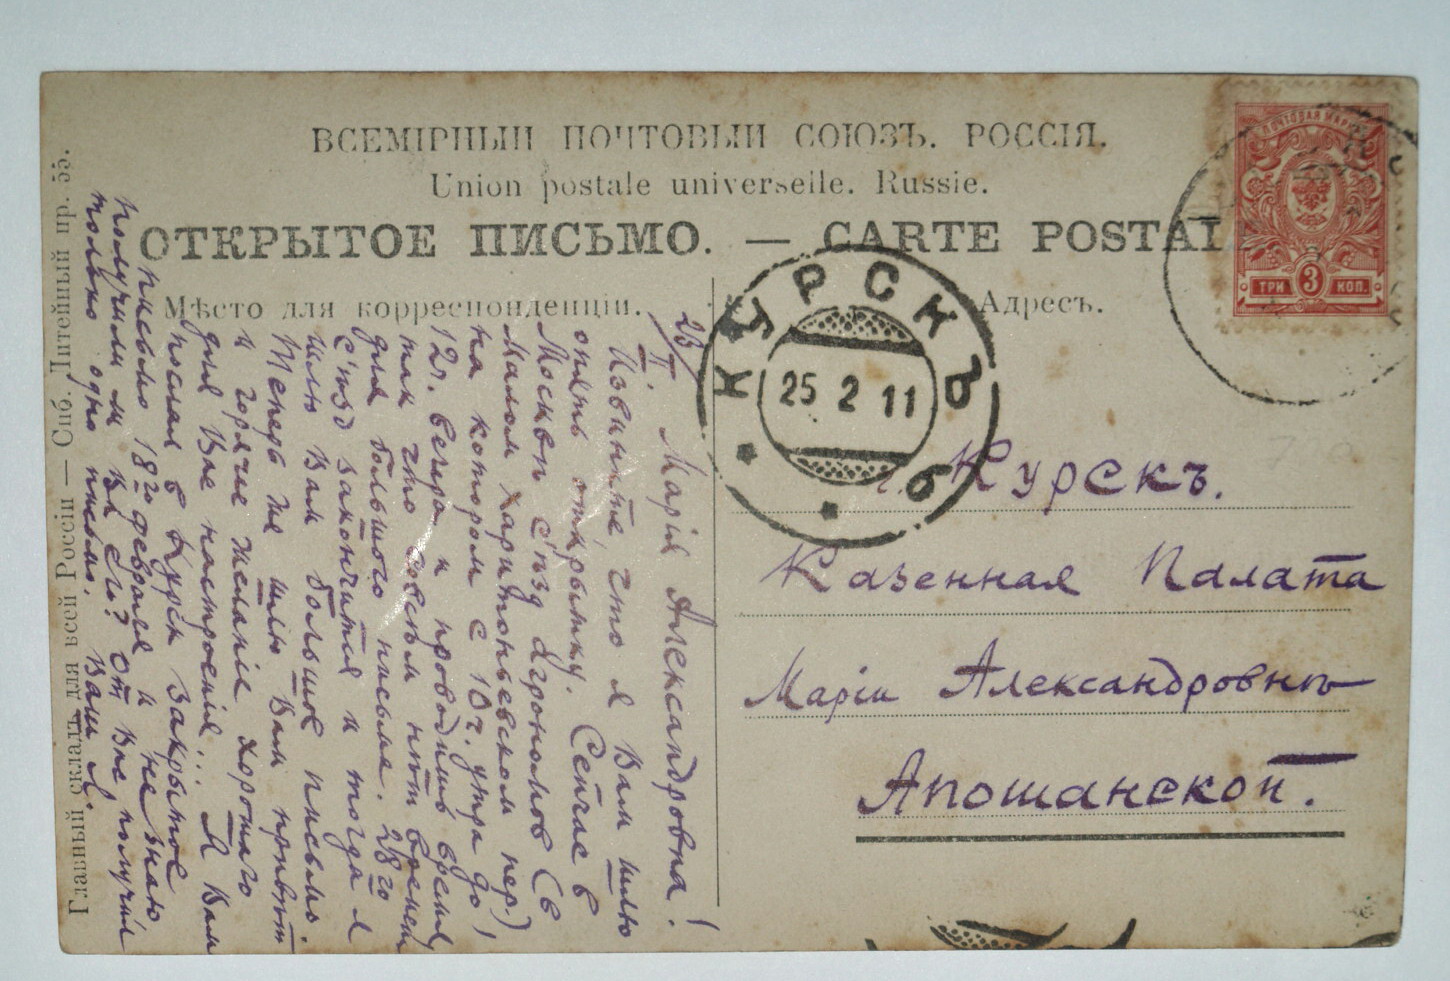 ВСЕМІРНЫЙ ПОЧТОВЫЙ СОЮЗЪ. РОССІЯ.
Union postale universelle. Russie.
ОТКРЫТОЕ ПИСЬМО. — CARTE POSTAL
Мѣсто для корреспонденціи.
Адресъ.
ПОЧТОВАЯ МАРКА
ТРИ 3 КОП.
КУРСКЪ
25 2 11
б
г. Курскъ.
Казенная Палата
Маріи Александровнѣ
Апошанской.
23/II. Марія Александровна!
Извините, что я Вам шлю
опять открытку. Сейчас в
Москвѣ съѣзд Агрономов (в
Малом Харитоньевском пер.)
на котором с 10 ч. утра до
12 ч. вечера и проводишь время,
так что совсѣм нѣт времени
для большого письма. 28го
съѣзд закончится и тогда я
шлю Вам большое письмо.
Теперь же шлю Вам привѣт
и горячие желание хорошаго
для Вас настроения... Я Вам
послал в Курск закрытое
письмо 18го февраля и не знаю
получили ли Вы его? От Вас получил
только одно письмо. Ваш
Главный складъ для всей Россіи — Спб. Литейный пр. 55.